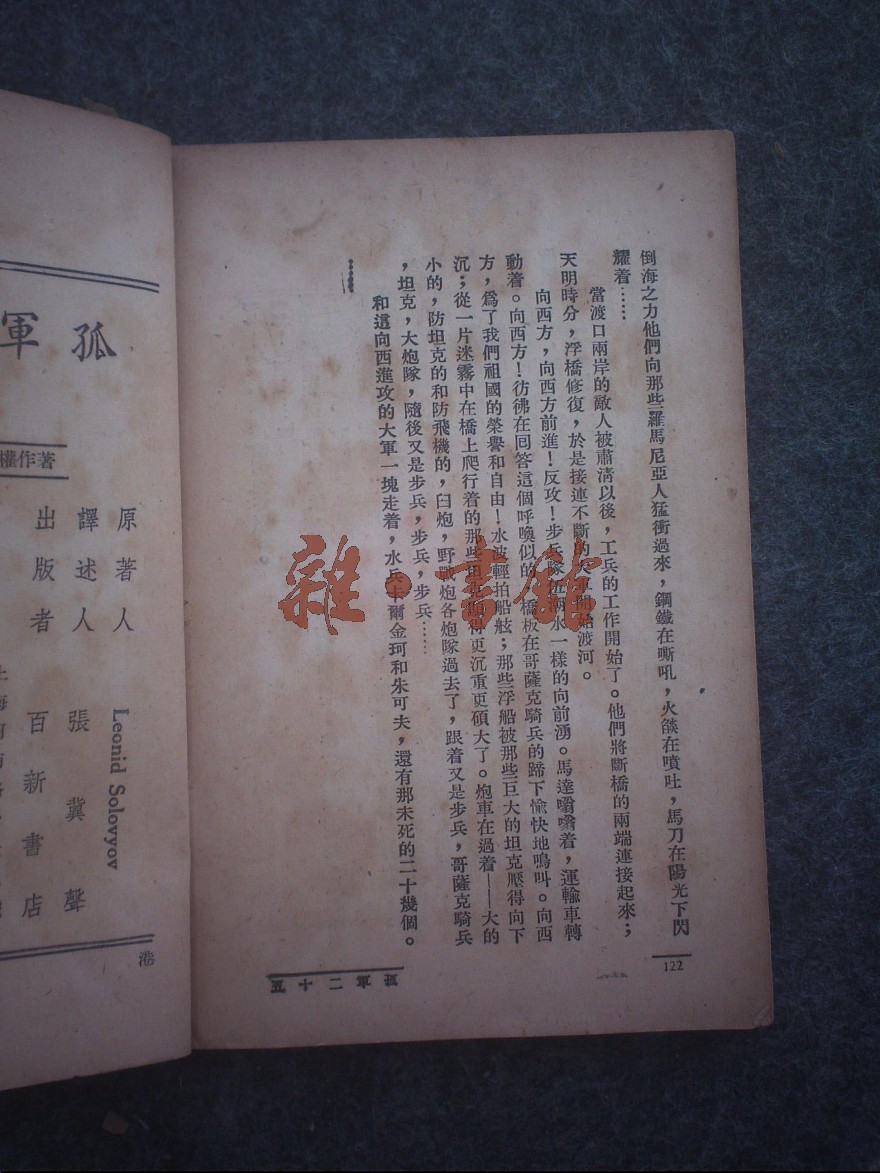 倒海之力他們向那些羅馬尼亞人猛衝過來，鋼鐵在嘶吼，火燄在噴吐，馬刀在陽光下閃
耀着……
當渡口兩岸的敵人被肅清以後，工兵的工作開始了。他們將斷橋的兩端連接起來；
天明時分，浮橋修復，於是接連不斷的大軍開始渡河。
向西方，向西方前進！反攻！步兵隊伍潮水一樣的向前湧。馬達嚼嚼着，運輸車轉
動着。向西方！彷彿在回答這個呼喚似的，橋板在哥薩克騎兵的蹄下愉快地鳴叫。向西
方，爲了我們祖國的榮譽和自由！水波輕拍船舷；那些浮船被那些巨大的坦克壓得向下
沉；從一片迷霧中在橋上爬行着的那些坦克顯得更沉重更碩大了。炮車在過着——大的
小的，防坦克的和防飛機的，臼炮，野戰炮各炮隊過去了，跟着又是步兵，哥薩克騎兵
，坦克，大炮隊，隨後又是步兵，步兵，步兵……
和這向西進攻的大軍一塊走着，水兵卡爾金珂和朱可夫，還有那未死的二十幾個。
122
孤軍二十五
雜·書館
孤軍
著作權
原著人 Leonid Solovyov
譯述人 張冀聲
出版者 百新書店
港